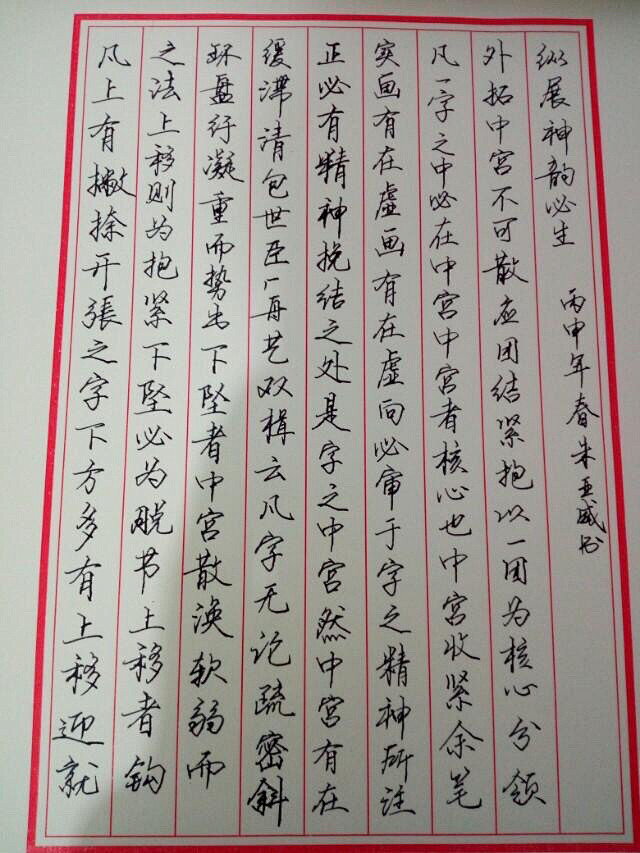 凡上有撇捺开張之字下方多有上移迎就
之法上移则为抱紧下坠必为脱节上移者钩
环盘纡凝重而势出下坠者中宫散涣软弱而
缓滞清包世臣艺双楫云凡字无论疏密斜
正必有精神挽结之处是字之中宫然中宫有在
实画有在虚画有在虚向必审于字之精神所注
凡一字之中必在中宫中宫者核心也中宫收紧余笔
外拓中宫不可散应团结紧抱以一团为核心分领
纵展神韵必生 丙申年春朱亚威书